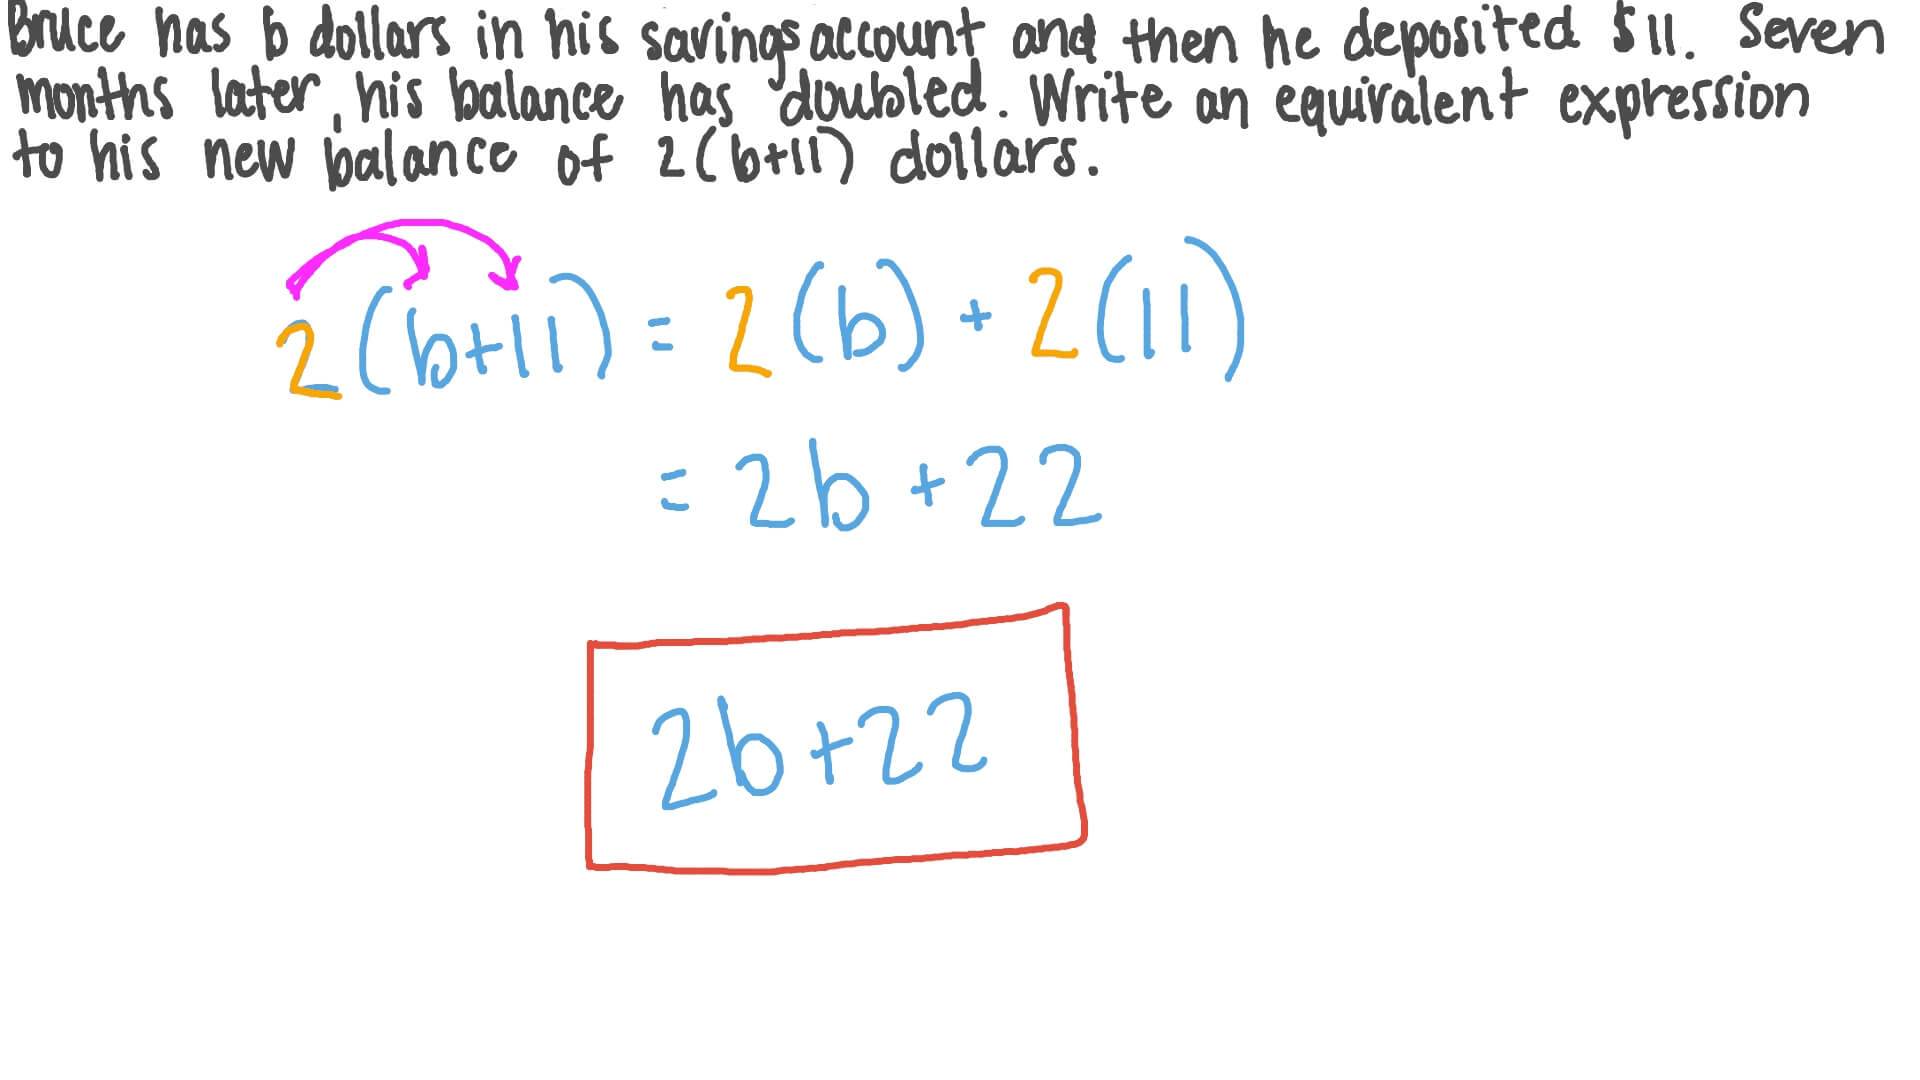 Bruce has b dollars in his savings account and then he deposited $11. Seven
months later, his balance has doubled. Write an equivalent expression
to his new balance of 2(b+11) dollars.
2(b+11) = 2(b) + 2(11)
= 2b + 22
2b+22